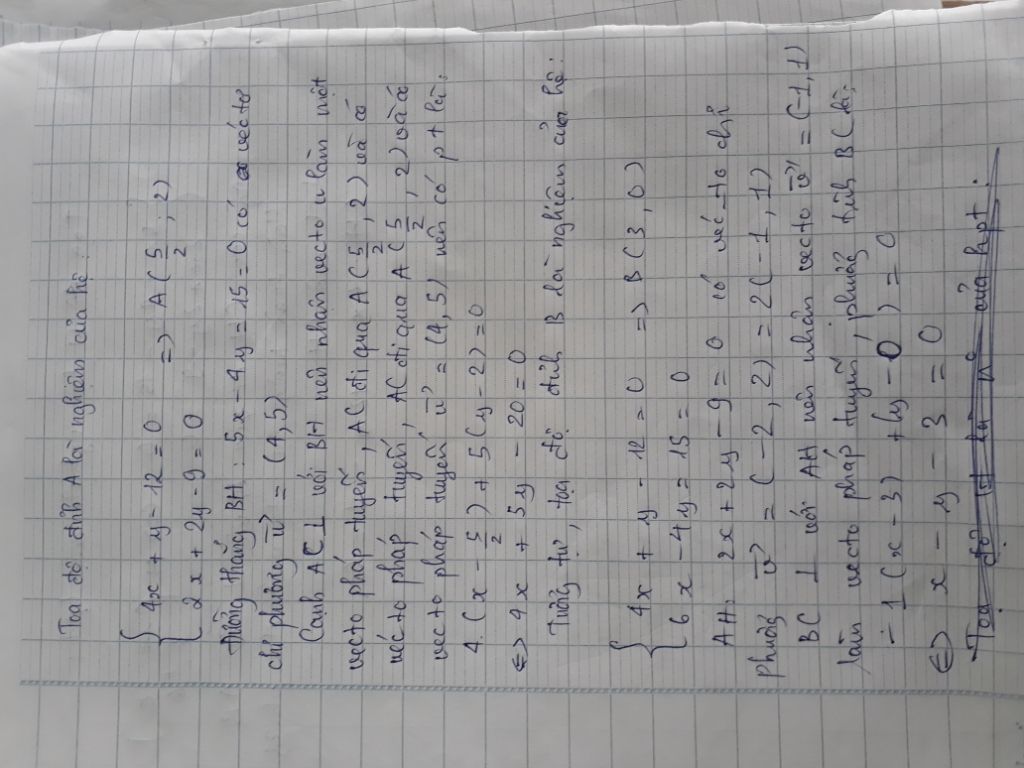 Tọa độ đỉnh A là nghiệm của hệ:
{ 4x + y - 12 = 0
2x + 2y - 9 = 0 => A ( 5/2 ; 2)
Đường thẳng BH: 5x - 4y = 15 = 0 có véctơ
chỉ phương u→ = (4,5)
Cạnh AC ⊥ với BH nên nhận vectơ u làm một
vectơ pháp tuyến, AC đi qua A ( 5/2 , 2) và có
véctơ pháp tuyến, AC đi qua A ( 5/2 , 2) và có
vectơ pháp tuyến u→ = (4,5) nên có pt là:
4. (x - 5/2 ) + 5(y - 2) = 0
<=> 4x + 5y - 20 = 0
Tương tự, tọa độ đỉnh B là nghiệm của hệ:
{ 4x + y - 12 = 0 => B (3, 0)
6x - 4y = 15 = 0
AH: 2x + 2y - 9 = 0 có véc tơ chỉ
phương v→ = (-2, 2) = 2(-1, 1)
BC ⊥ với AH nên nhận vectơ v→ = (-1,1)
làm vectơ pháp tuyến, phương trình BC là:
- 1 (x - 3) + (y - 0) = 0
<=> x - y - 3 = 0
Tọa độ H là n° của hpt.